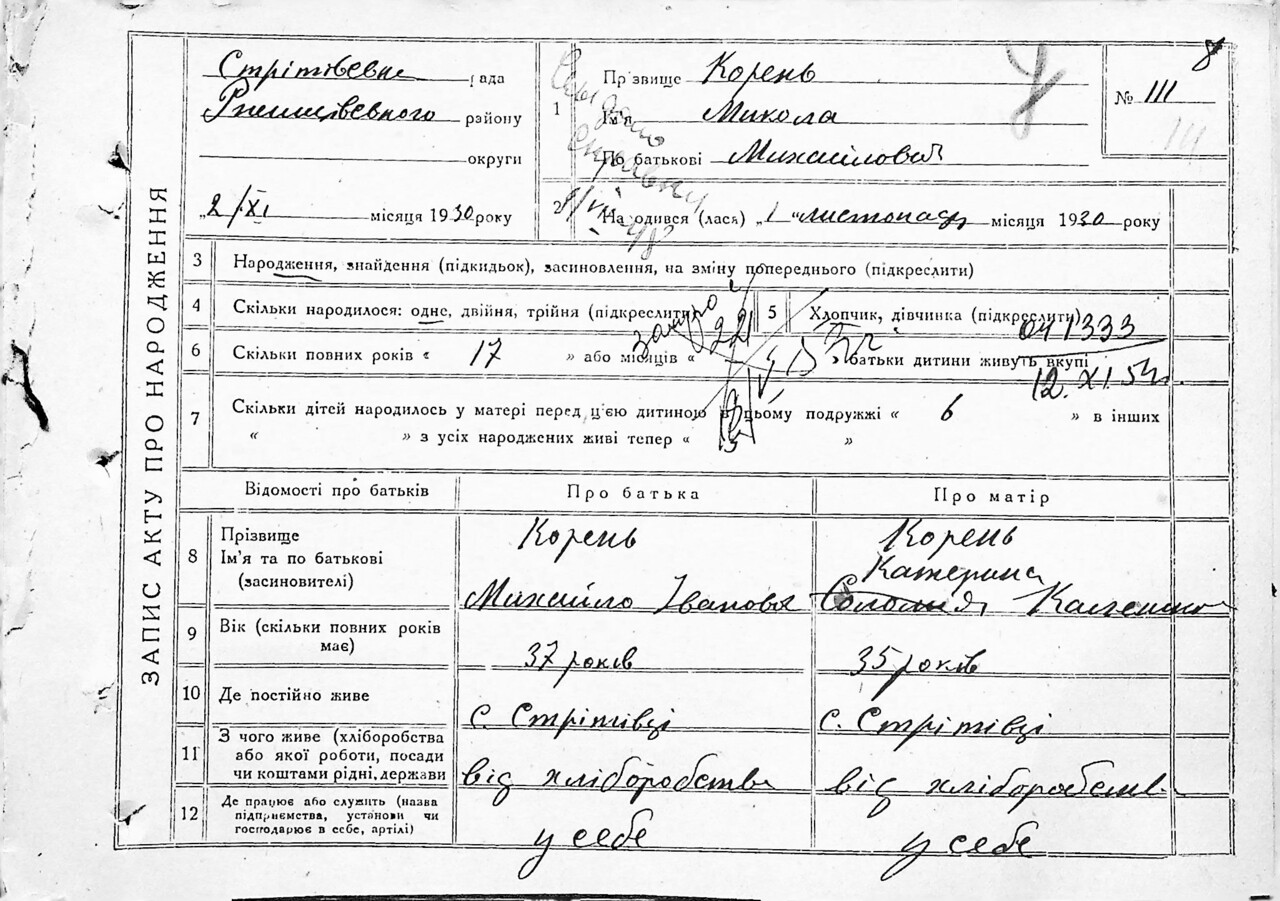 ЗАПИС АКТУ ПРО НАРОДЖЕННЯ
Стрітівська рада
Ржищівського району
округи
„2/XI місяця 1930 року
1 Прізвище Корень
Ім'я Микола
По батькові Михайлович
8
№ 111
111
2 Народився (лася) „1 " листопада місяця 1930 року
3 Народження, знайдення (підкидьок), засиновлення, на зміну попереднього (підкреслити)
4 Скільки народилося: одне, двійня, трійня (підкреслити)
5 Хлопчик, дівчинка (підкреслити)
041333
12.XI.54 г.
6 Скільки повних років « 17 » або місяців « » батьки дитини живуть вкупі
7 Скільки дітей народилось у матері перед ц'єю дитиною в цьому подружжі « 6 » в інших
« » з усіх народжених живі тепер « »
Відомості про батьків Про батька Про матір
8 Прізвище
Ім'я та по батькові
(засиновителі)
Корень
Михайло Іванович
Корень
Катерина
Соломія
9 Вік (скільки повних років
має)
37 років
35 років
10 Де постійно живе
с. Стрітівці
с. Стрітівці
11 З чого живе (хліборобства
або якої роботи, посади
чи коштами рідні, держави
від хліборобства
від хліборобства
12 Де працює або служить (назва
підприємства, установи чи
господарює в себе, артілі)
у себе
у себе